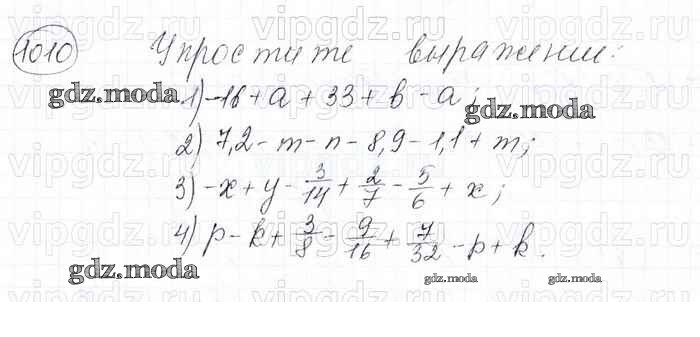 vipgdz.ru vipgdz.ru vipgdz.ru vipgdz.ru
1010 Упростите выражении:
gdz.moda
1) -16 + a + 33 + b - a;
gdz.moda
2) 7,2 - m - n - 8,9 - 1,1 + m;
3) -x + y - 3/14 + 2/7 - 5/6 + x;
4) p - k + 3/8 - 9/16 + 7/32 - p + k.
gdz.moda gdz.moda gdz.moda